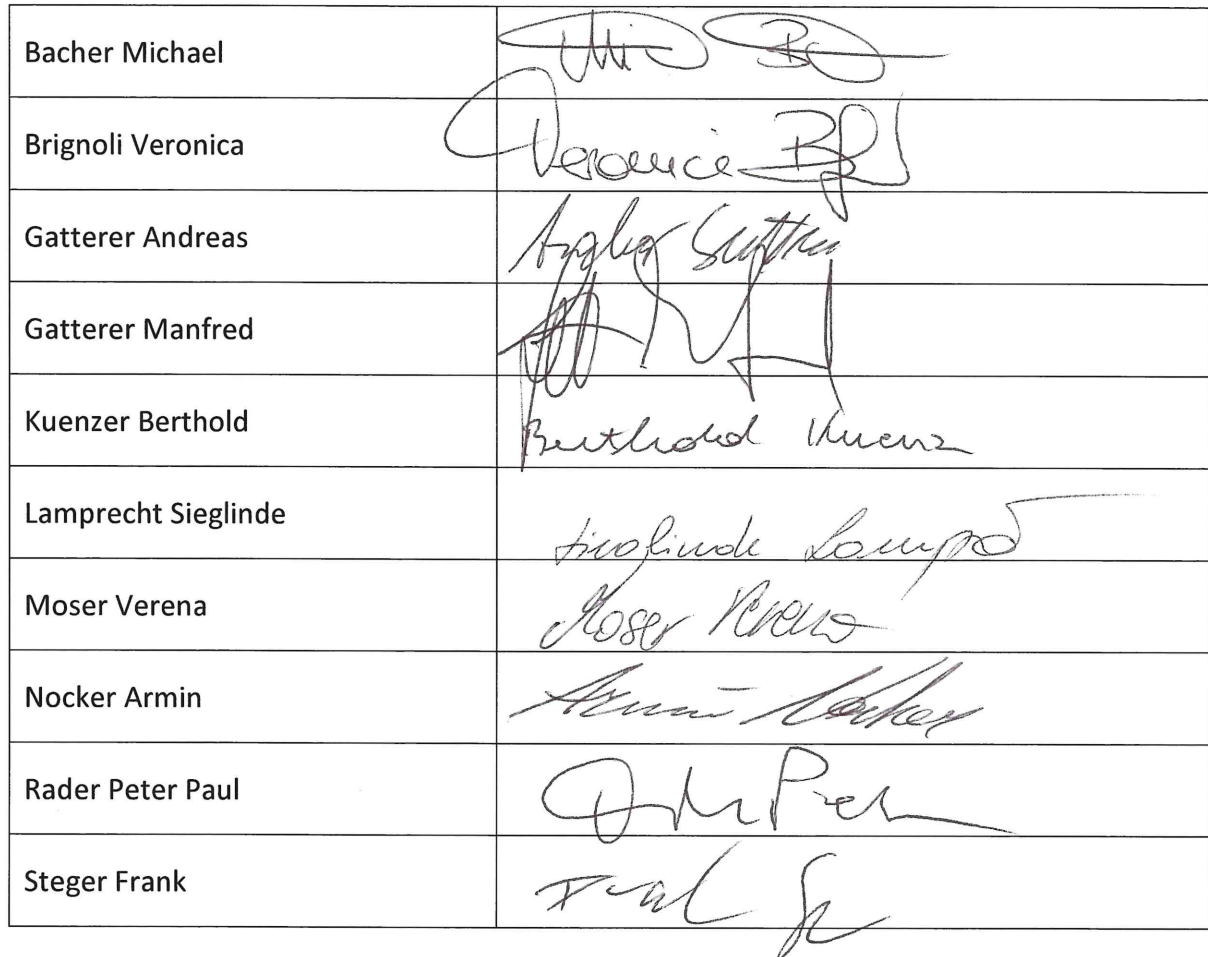 Bacher Michael
Brignoli Veronica Veronica
Gatterer Andreas
Gatterer Manfred
Kuenzer Berthold Berthold Kuenz
Lamprecht Sieglinde Sieglinde
Moser Verena Moser Verena
Nocker Armin Armin Nocker
Rader Peter Paul
Steger Frank Frank